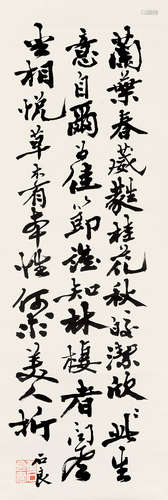 蘭葉春葳蕤桂花秋皎潔欣〻此生
意自爾為佳節誰知林棲者聞風
坐相悅草木有本性何求美人折
石良